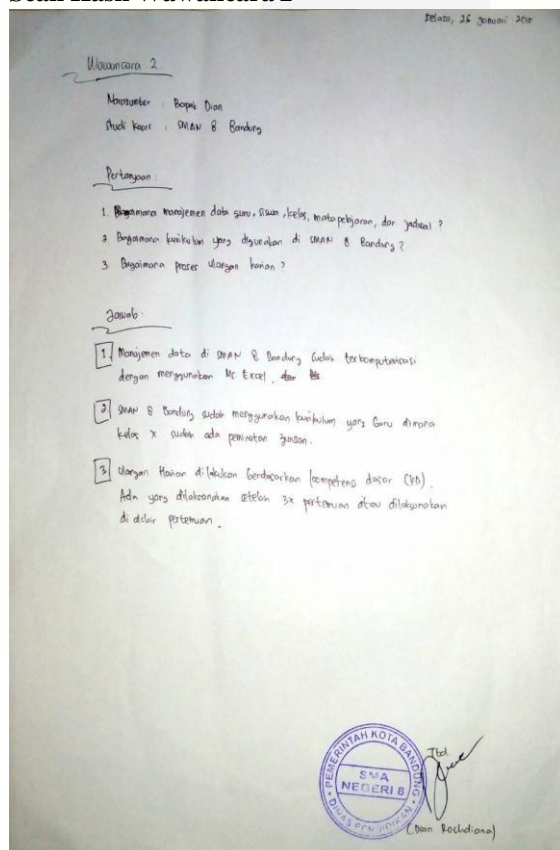 Scan Hasil Wawancara 2
Selasa, 26 Januari
Wawancara 2.
Narasumber : Bapak Dian
Studi Kasus : SMAN 8 Bandung
Pertanyaan :
1. Bagaimana manajemen data guru, siswa, kelas, mata pelajaran, dan jadwal ?
2. Bagaimana kurikulum yang digunakan di SMAN 8 Bandung ?
3. Bagaimana proses ulangan harian ?
Jawab :
1. Manajemen data di SMAN 8 Bandung sudah terkomputerisasi
dengan menggunakan Ms. Excel.
2. SMAN 8 Bandung sudah menggunakan kurikulum yang baru dimana
kelas X sudah ada peminatan jurusan.
3. Ulangan Harian dilakukan berdasarkan kompetensi dasar (KD).
Ada yang dilaksanakan setelah 3x pertemuan atau dilaksanakan
di akhir pertemuan.
PEMERINTAH KOTA BANDUNG
SMA
NEGERI 8
DINAS PENDIDIKAN
Ttd
(Dian Rochdiana)